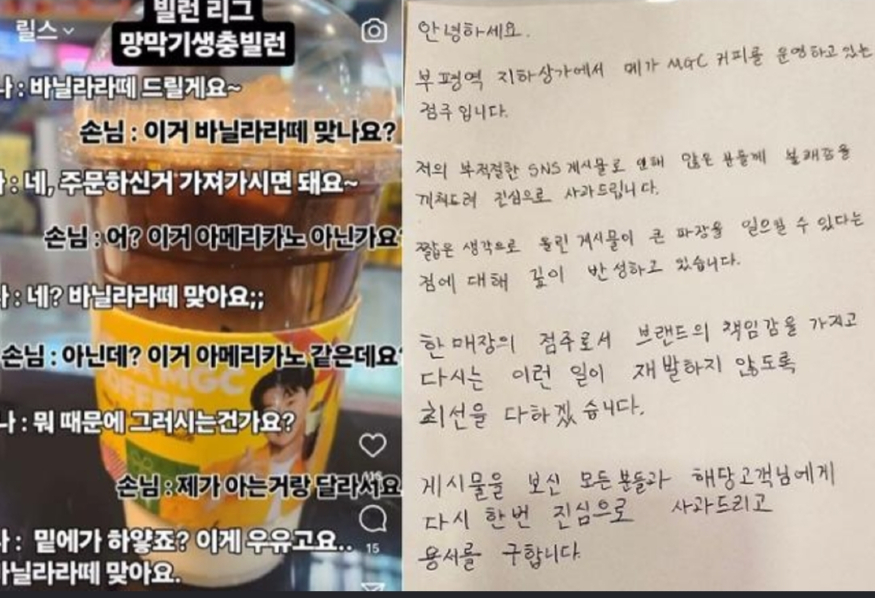 릴스
빌런 리그
망막기생충빌런
나 : 바닐라라떼 드릴게요~
손님 : 이거 바닐라라떼 맞나요?
: 네, 주문하신거 가져가시면 돼요~
손님 : 어? 이거 아메리카노 아닌가요?
: 네? 바닐라라떼 맞아요;;
손님 : 아닌데? 이거 아메리카노 같은데요?
나 : 뭐 때문에 그러시는건가요?
손님 : 제가 아는거랑 달라서요
: 밑에가 하얗죠? 이게 우유고요..
바닐라라떼 맞아요.
MGC
COFFEE
15
안녕하세요.
부평역 지하상가에서 메가 MGC 커피를 운영하고 있는
점주 입니다.
저의 부적절한 SNS 게시물로 인해 많은 분들께 불쾌감을
끼쳐드려 진심으로 사과드립니다.
짧은 생각으로 올린 게시물이 큰 파장을 일으킬 수 있다는
점에 대해 깊이 반성하고 있습니다.
한 매장의 점주로서 브랜드의 책임감을 가지고
다시는 이런 일이 재발하지 않도록
최선을 다하겠습니다.
게시물을 보신 모든분들과 해당고객님에게
다시 한번 진심으로 사과드리고
용서를 구합니다.